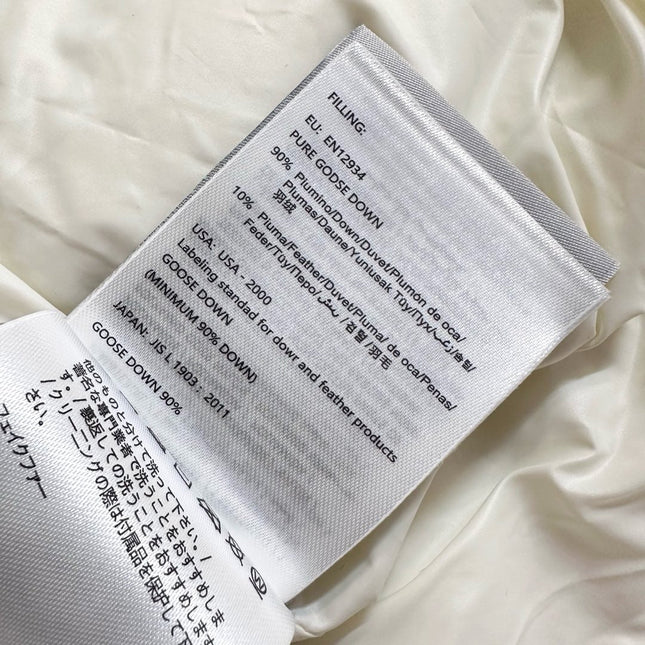 FILLING:
EU: EN12934
PURE GODSE DOWN
90% Plumino/Down/Duvet/Plumón de oca/
Plumas/Daune/Yunlusak Tüy/Пух/زغب/솜털/
羽绒
10% Pluma/Feather/Duvet/Pluma/ de oca/Penas/
Feder/Tüy/Перо/ريش/깃털/羽毛
USA: USA - 2000
Labeling standad for dowr and feather products
GOOSE DOWN
(MINIMUM 90% DOWN)
JAPAN: JIS L 1903 : 2011
GOOSE DOWN 90%
他のものと分けて洗って下さい。/
著名な専門業者で洗うことをおすすめしま
す。/裏返しての洗うことをおすすめします
/クリーニングの際は付属品を保護して下
さい。
フェイクファー